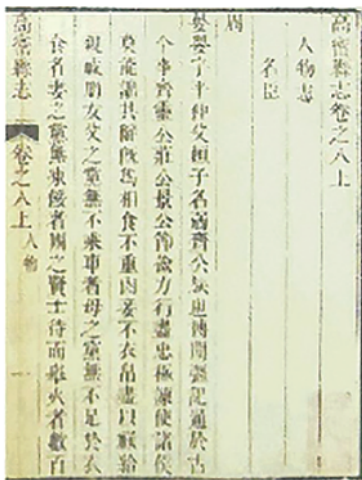 高密縣志卷之八上
人物志
名臣
周
晏嬰字平仲父桓子名弱齊公族也博聞強記通於古
今事齊靈公莊公景公節儉力行盡忠極諫使諸侯
莫能詘其辭旣爲相食不重肉妾不衣帛盡以祿給
親戚朋友父之黨無不乘車者母之黨無不足於衣
食者妻之黨無凍餒者國之賢士待而舉火者數百
高密縣志
卷之八上
人物
一